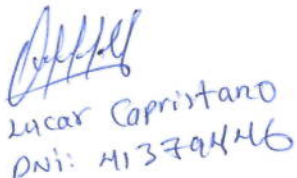 Lucar Capristano
DNi: 41379446